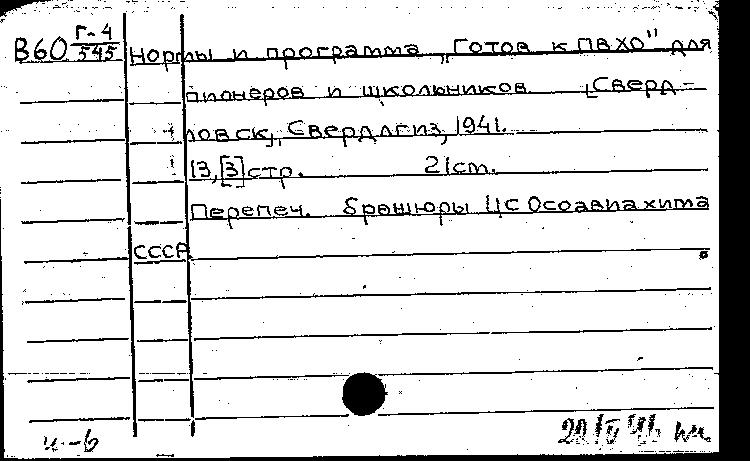 В60 Г-4/545 Нормы и программа „Готов к ПВХО" для
пионеров и школьников [Сверд-
ловск], Свердлгиз, 1941.
13,[3]стр. 21см.
Перепеч. брошюры ЦС Осоавиахима
СССР